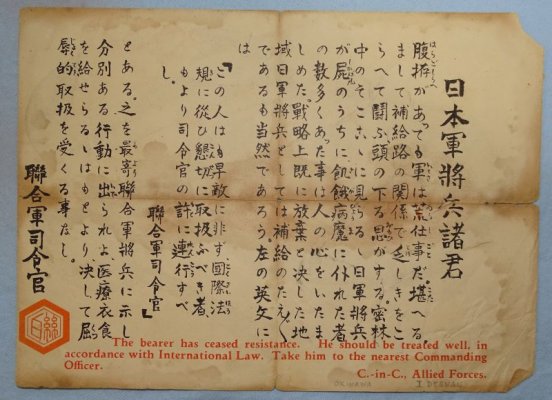 日本軍將兵諸君
腹拵があつても軍は荒仕事だ。堪へる
まして補給路の関係で乏しきをこ
らへて闘ふ頭の下る思がする。密林
中のそここゝに見らるゝ日軍將兵
が屍のうちに飢餓病魔に仆れた者
の数多くあつた事は人の心をいたま
しめた。戰略上既に放棄と決した地
域日軍將兵としては補給のたえ〴〵
であるも当然であろう。左の英文に
は
「この人はもは早敵に非ず、國際法
規に從ひ懇切に取扱ふべき者、
もより司令官の許に連行すべ
し。
聯合軍司令官」
とある。之を最寄聯合軍將兵に示し
分別ある行動に出られよ、医療衣食
を給せらるゝはもとより、決して屈
辱的取扱を受くる事なし。
聯合軍司令官
The bearer has ceased resistance. He should be treated well, in
accordance with International Law. Take him to the nearest Commanding
Officer.
C.-in-C., Allied Forces.
OKINAWA